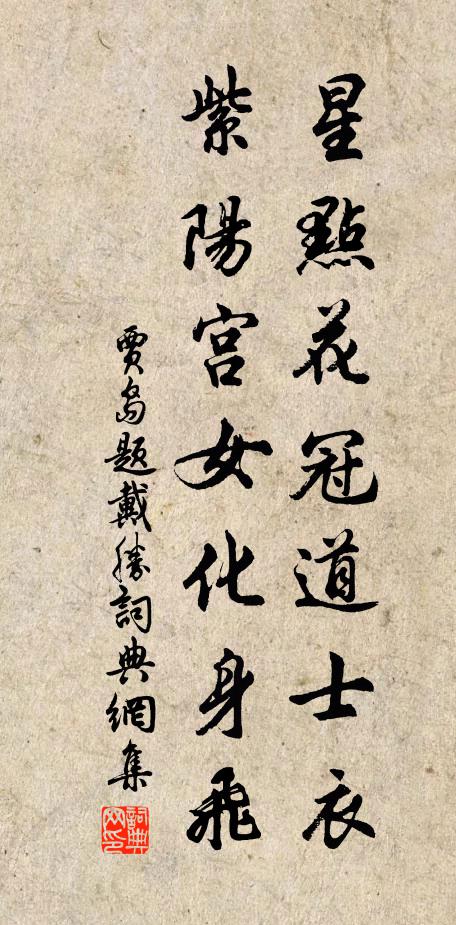 星點花冠道士衣
紫陽宮女化身飛
賈島題戴勝詞典網集
詞典网印